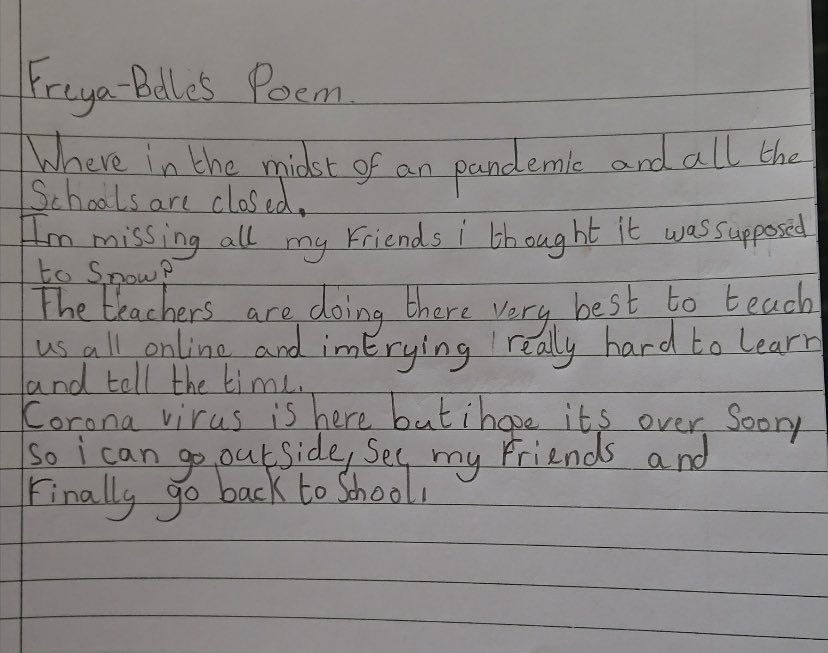 Freya-Belle's Poem.
Where in the midst of an pandemic and all the
Schools are closed.
Im missing all my Friends i thought it was supposed
to Snow?
The teachers are doing there very best to teach
us all online and im trying really hard to learn
and tell the time.
Corona virus is here but i hope its over Soon,
so i can go outside, See my Friends and
Finally go back to School.